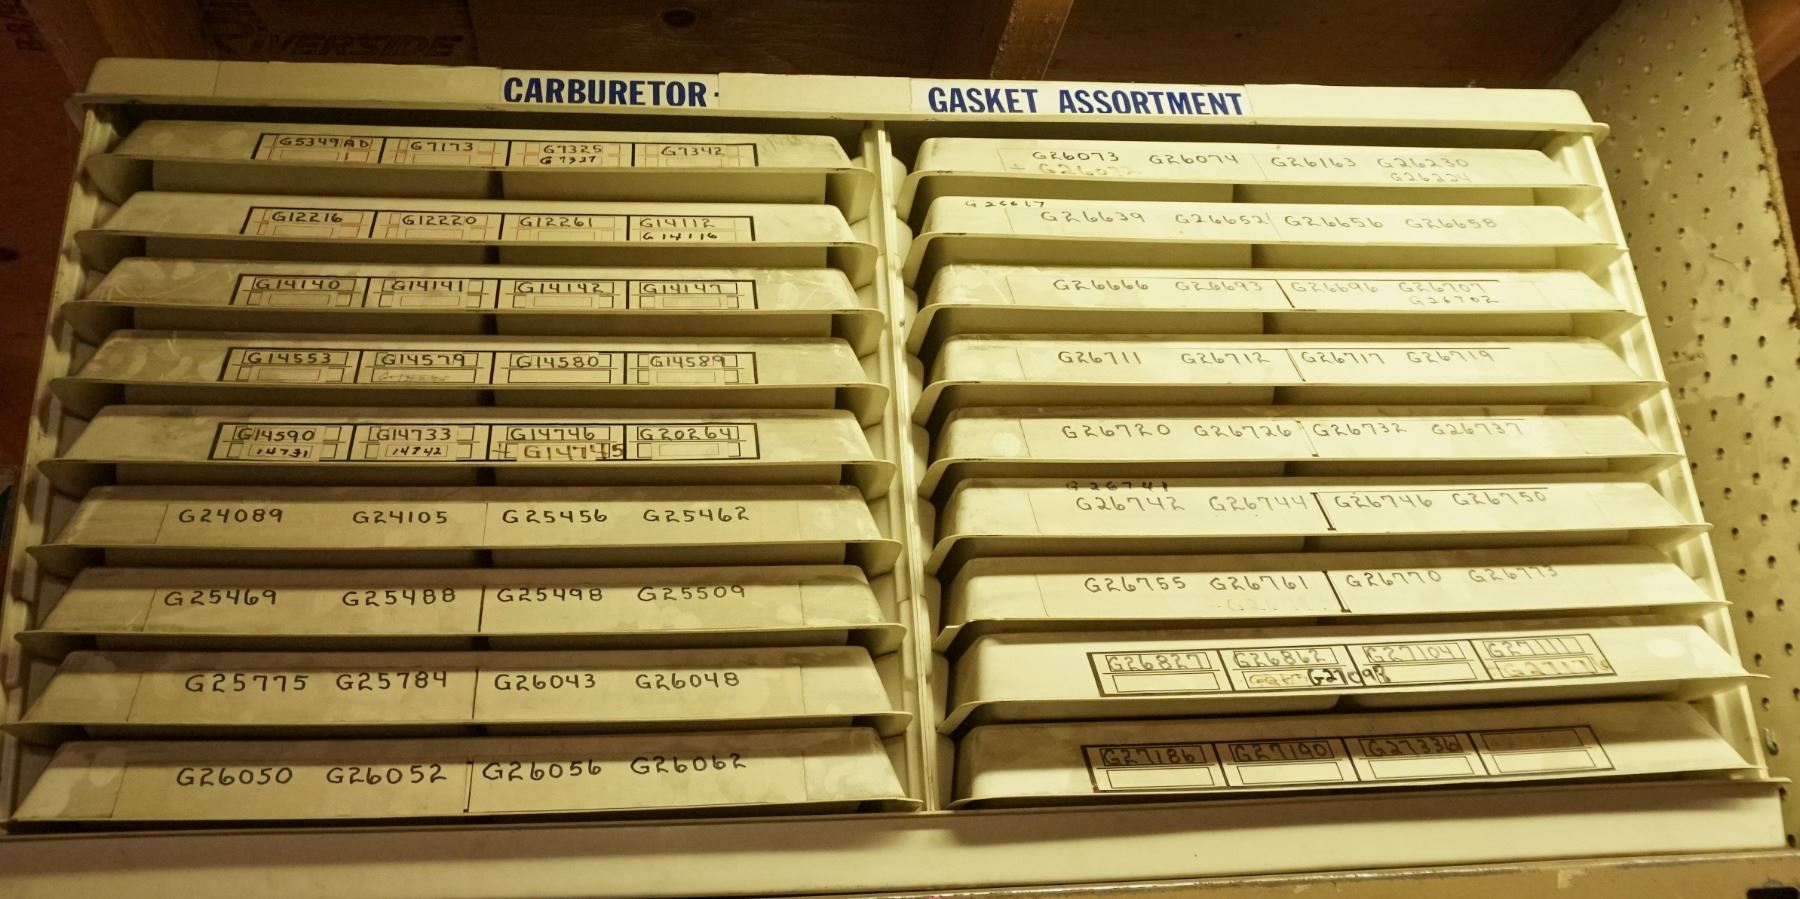 RIVERSIDE
CARBURETOR· GASKET ASSORTMENT
G5349AD G7173 G7325 G7342
G7327
G12216 G12220 G12261 G14112
G14116
G14140 G14141 G14142 G14147
G14553 G14579 G14580 G14589
G14590 G14733 G14746 G20264
14731 14742 + G14745
G24089 G24105 G25456 G25462
G25469 G25488 G25498 G25509
G25775 G25784 G26043 G26048
G26050 G26052 G26056 G26062
G26073 G26074 G26163 G26230
+ G26072 G26234
G26617
G26639 G26652 G26656 G26658
G26666 G26693 G26696 G26707
G26702
G26711 G26712 G26717 G26719
G26720 G26726 G26732 G26737
G26741
G26742 G26744 G26746 G26750
G26755 G26761 G26770 G26773
G26827 G26862 G27104 G27111
G27098
G27186 G27190 G27336